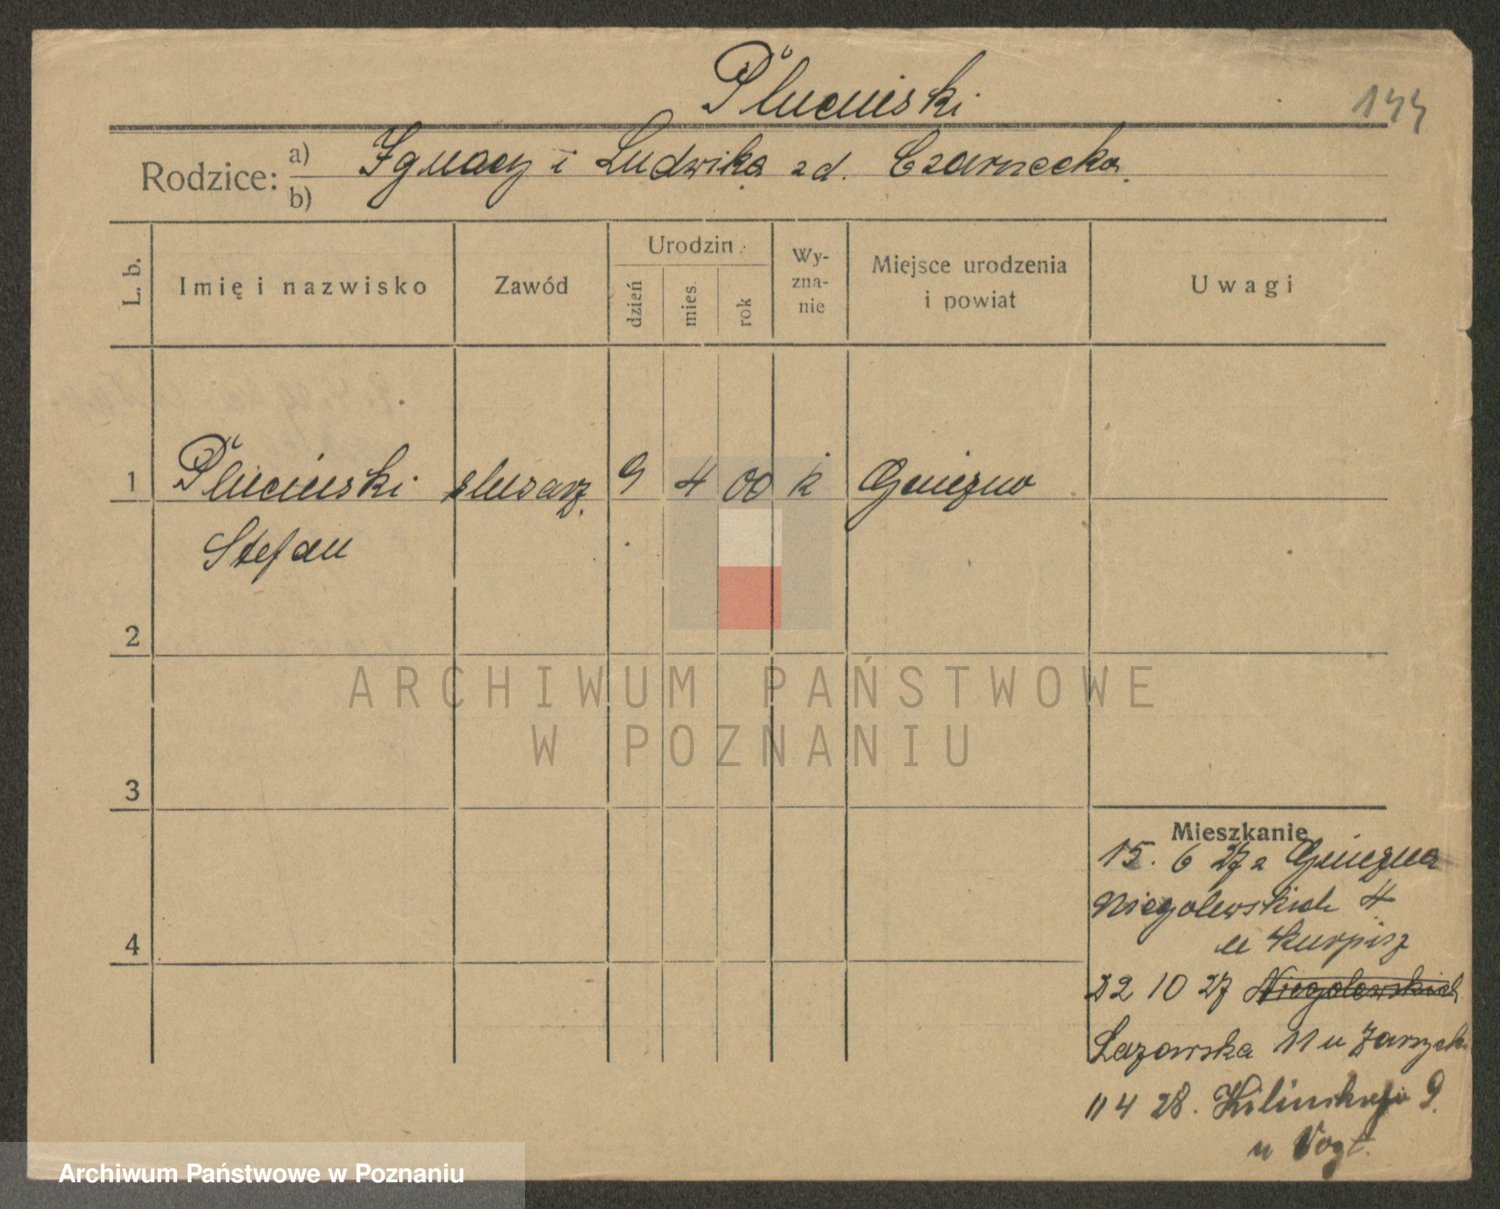 Pluciński
144
Rodzice: a) b) Ignacy i Ludwika zd. Czarnecka.
L. b. Imię i nazwisko Zawód Urodzin: dzień mies. rok Wy-zna-nie Miejsce urodzenia i powiat Uwagi
1 Pluciński ślusarz. 9 4 00 k Gniezno
Stefan
2
ARCHIWUM PAŃSTWOWE
W POZNANIU
3
Mieszkanie
15. 6 27 z Gniezna
Niegolewskich 4
u Kurpisz
4
22 10 27 Niegolewskich
Łazarska 11 u
11 4 28. Kilińskiego 9.
u Vogt.
Archiwum Państwowe w Poznaniu